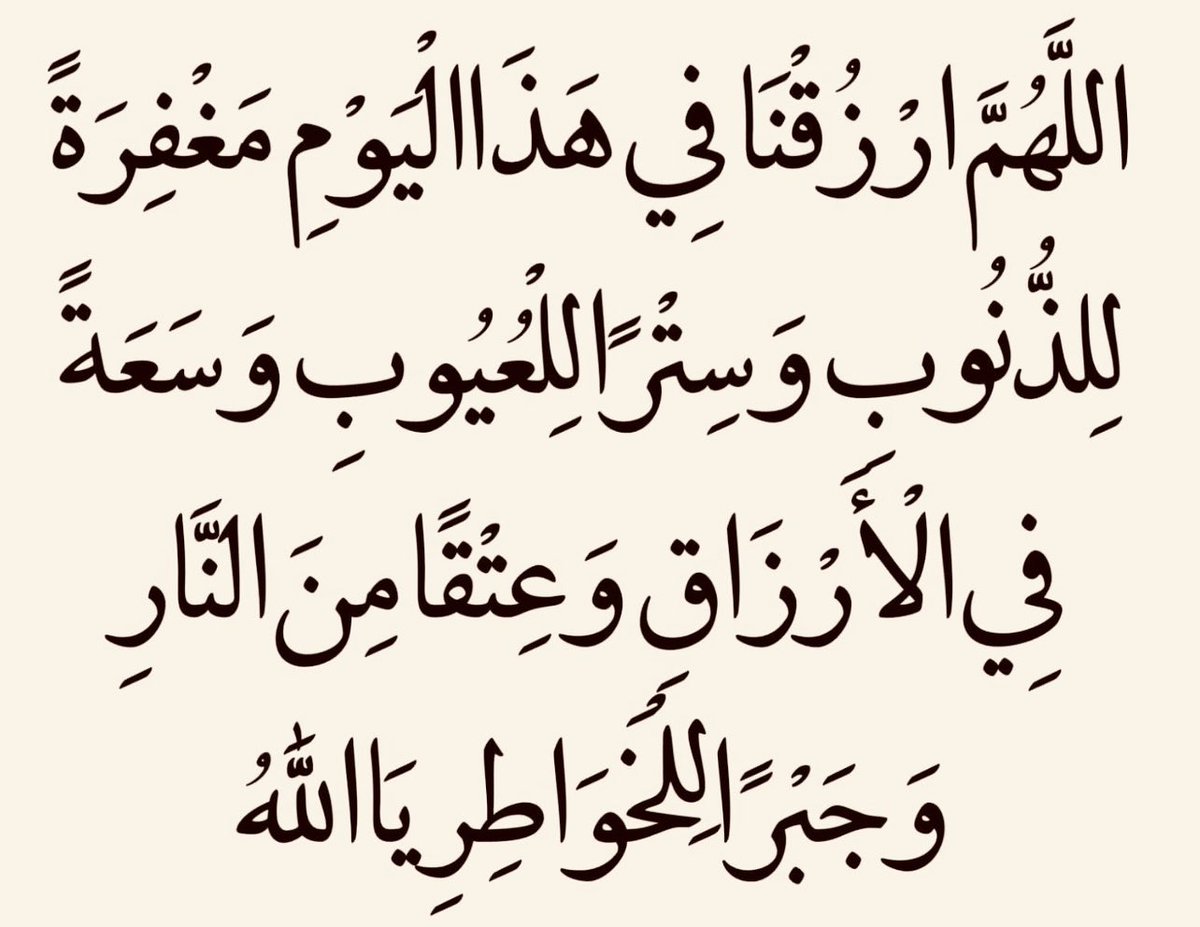 اللَّهُمَّ ارْزُقْنَا فِي هَذَا الْيَوْمِ مَغْفِرَةً
لِلذُّنُوبِ وَسِتْرًا لِلْعُيُوبِ وَسَعَةً
فِي الْأَرْزَاقِ وَعِتْقًا مِنَ النَّارِ
وَجَبْرًا لِلْخَوَاطِرِ يَا اللَّهُ